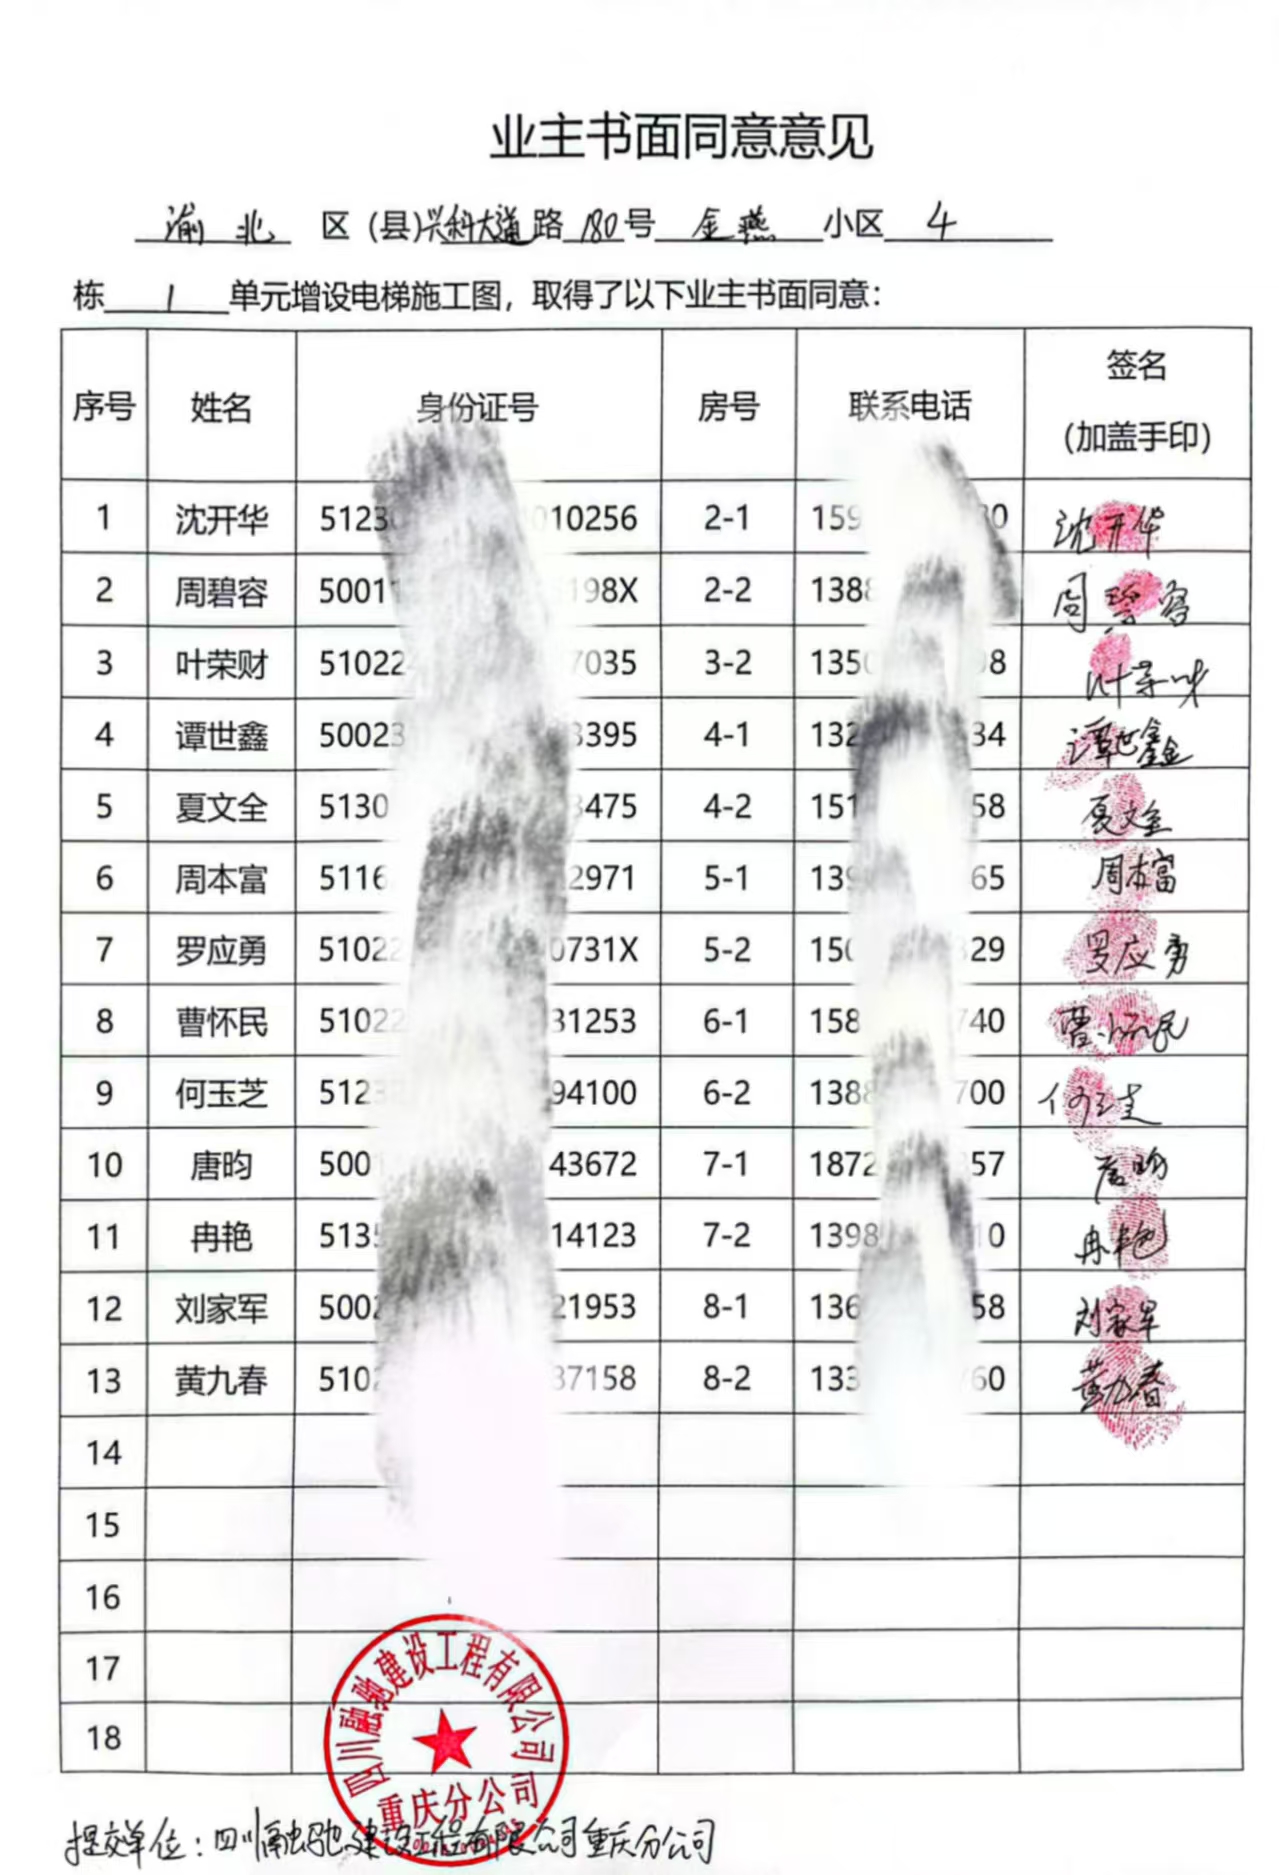 业主书面同意意见
渝北 区（县）兴科大道路 180号 金燕 小区 4
栋 1 单元增设电梯施工图，取得了以下业主书面同意：
序号 姓名 身份证号 房号 联系电话 签名（加盖手印）
1 沈开华 5123 010256 2-1 159 0 沈开华
2 周碧容 5001 198X 2-2 138 周碧容
3 叶荣财 51022 7035 3-2 135 8 叶荣财
4 谭世鑫 50023 3395 4-1 132 34 谭世鑫
5 夏文全 5130 3475 4-2 151 58 夏文全
6 周本富 5116 2971 5-1 139 65 周本富
7 罗应勇 51022 0731X 5-2 150 329 罗应勇
8 曹怀民 51022 31253 6-1 158 740 曹怀民
9 何玉芝 5123 94100 6-2 1388 700 何玉芝
10 唐昀 500 43672 7-1 1872 57 唐昀
11 冉艳 513 14123 7-2 1398 10 冉艳
12 刘家军 500 21953 8-1 136 58 刘家军
13 黄九春 510 37158 8-2 133 760 黄九春
14
15
16
17
18
四川融驰建设工程有限公司
重庆分公司
提交单位：四川融驰建设工程有限公司重庆分公司